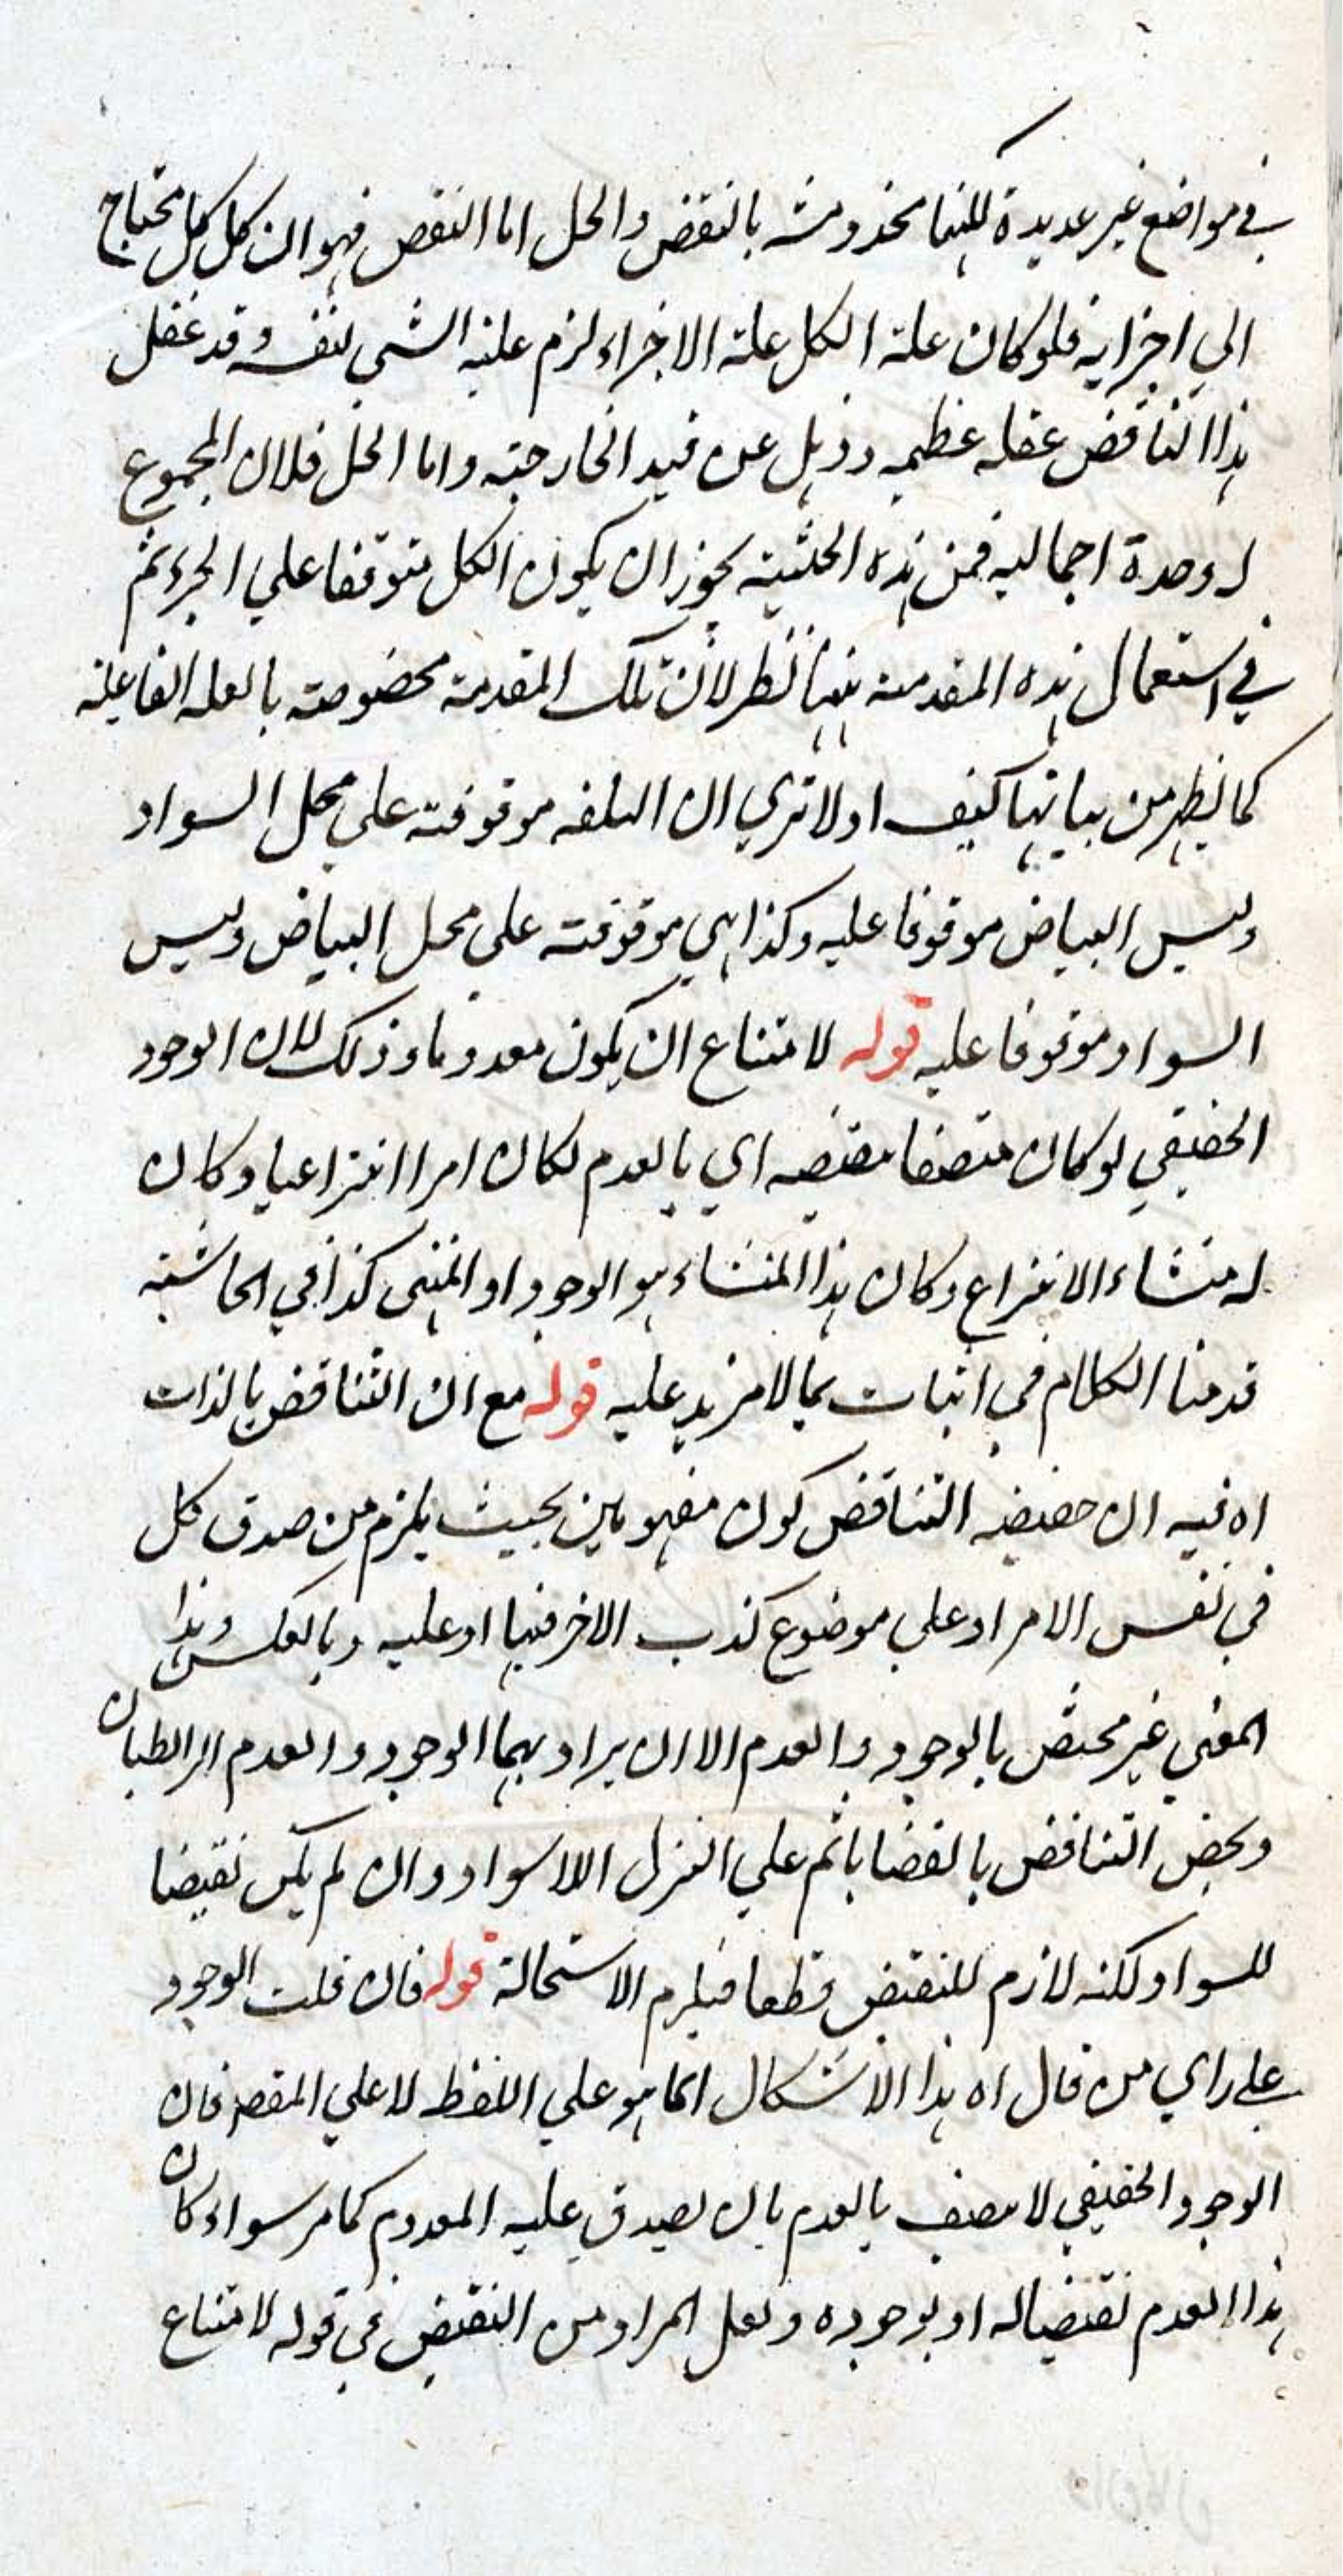 في مواضع غير عديدة لكنها مخدوشة بالنقض والحل اما النقض فهو ان كل كل محتاج
الي اجزايه فلو كان علة الكل علة الاجزاء لزم علية الشي لنفسه وقد غفل
هذا الناقض غفلة عظيمه وذهل عن قيد الخارجية واما الحل فلان المجموع
له وحدة اجماليه فمن هذه الحيثية يجوز ان يكون الكل متوقفا علي الجزء ثم
في استعمال هذه المقدمة ههنا نظر لان تلك المقدمة مخصوصة بالعلة الفاعلية
كما يظهر من بيانها كيف اولا تري ان البلقه موقوفة علي محل السواد
وليس البياض موقوفا عليه وكذا هي موقوفة علي محل البياض وليس
السواد موقوفا عليه قوله لامتناع ان يكون معدوما وذلك لان الوجود
الحقيقي لو كان متصفا بنقيضه اي بالعدم لكان امرا انتزاعيا وكان
له منشاء الانتزاع وكان هذا المنشاء هو الوجود او المنتهى كذا في الحاشية
قدمنا الكلام في اثبات بما لا مزيد عليه قوله مع ان التناقض بالذات
اه فيه ان حقيقة التناقض كون مفهومين بحيث يلزم من صدق كل
في نفس الامر او علي موضوع كذب الاخر فيها او عليه وبالعكس وهذا
المعني غير مختص بالوجود والعدم الا ان يراد بهما الوجود والعدم الرابطيان
ويخص التناقض بالقضايا ثم علي التنزل اللاسواد وان لم يكن نقيضا
للسواد لكنه لازم للنقيض قطعا فيلزم الاستحالة قوله فان قلت الوجود
علي راي من قال اه هذا الاشكال انما هو علي اللفظ لا علي المقصود فان
الوجود الحقيقي لا يتصف بالعدم بان يصدق عليه المعدوم كما مر سواء كان
هذا العدم نقيضا له او لوجوده ولعل المراد من النقيض في قوله لامتناع